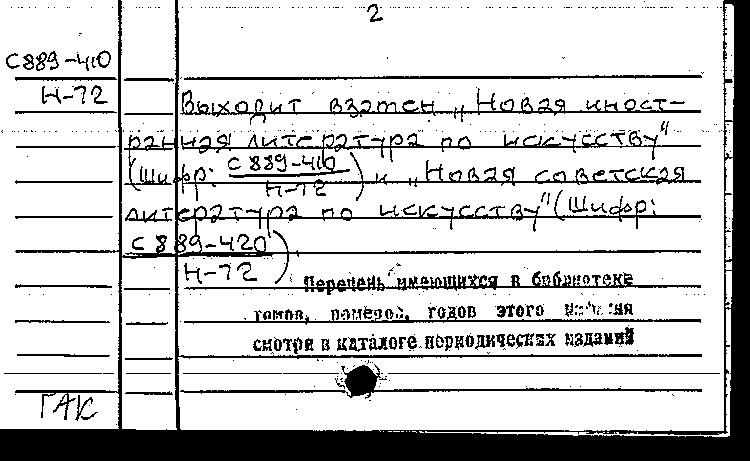 2
С889-410
Н-72
Выходит взамен „Новая иност-
ранная литература по искусству"
(Шифр: С889-410
Н-72) и „Новая советская
литература по искусству" (Шифр:
С889-420
Н-72).
Перечень имеющихся в библиотеке
томов, номеров, годов этого издания
смотри в каталоге периодических изданий
ГАК